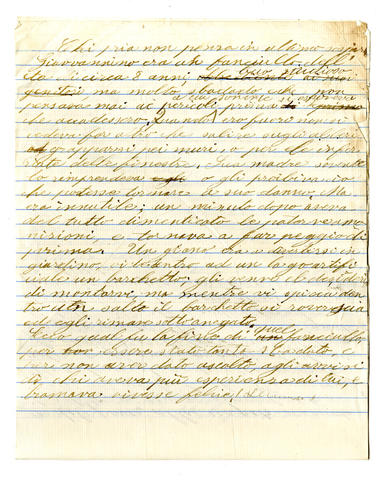 Chi pria non pensa in ultimo sospira
Giovannino era un fanciullo dell'e-
tà di circa 8 anni, buo studioso ai suoi
genitori ma molto sbadato che non
pensava mai ai pericoli prima
che accadessero. Quando ero fuori non si
vedeva far altro che salire sugli alberi
arrampicarsi pei muri o per le infer-
riate delle finestre. Sua madre sovente
lo riprendeva o gli proibiva ciò
che potesse tornare in suo danno. Ma
era inutile; un minuto dopo aveva
del tutto dimenticato le materne am-
monizioni, e tornava a far peggio di
prima. Un giorno
giardino, e accanto ad un lago artifi-
ciale un barchetto, gli venne il desiderio
di montarvi, ma mentre vi spiccò den-
tro un salto il barchetto si rovescia
ed egli rimase sott annegato.
Ecco qual fu la fine di quel fanciullo,
per essere stato tanto sbadato, e
per non aver dato ascolto agli avvisi
di chi aveva più esperienza di lui, e
bramava vivesse felice!